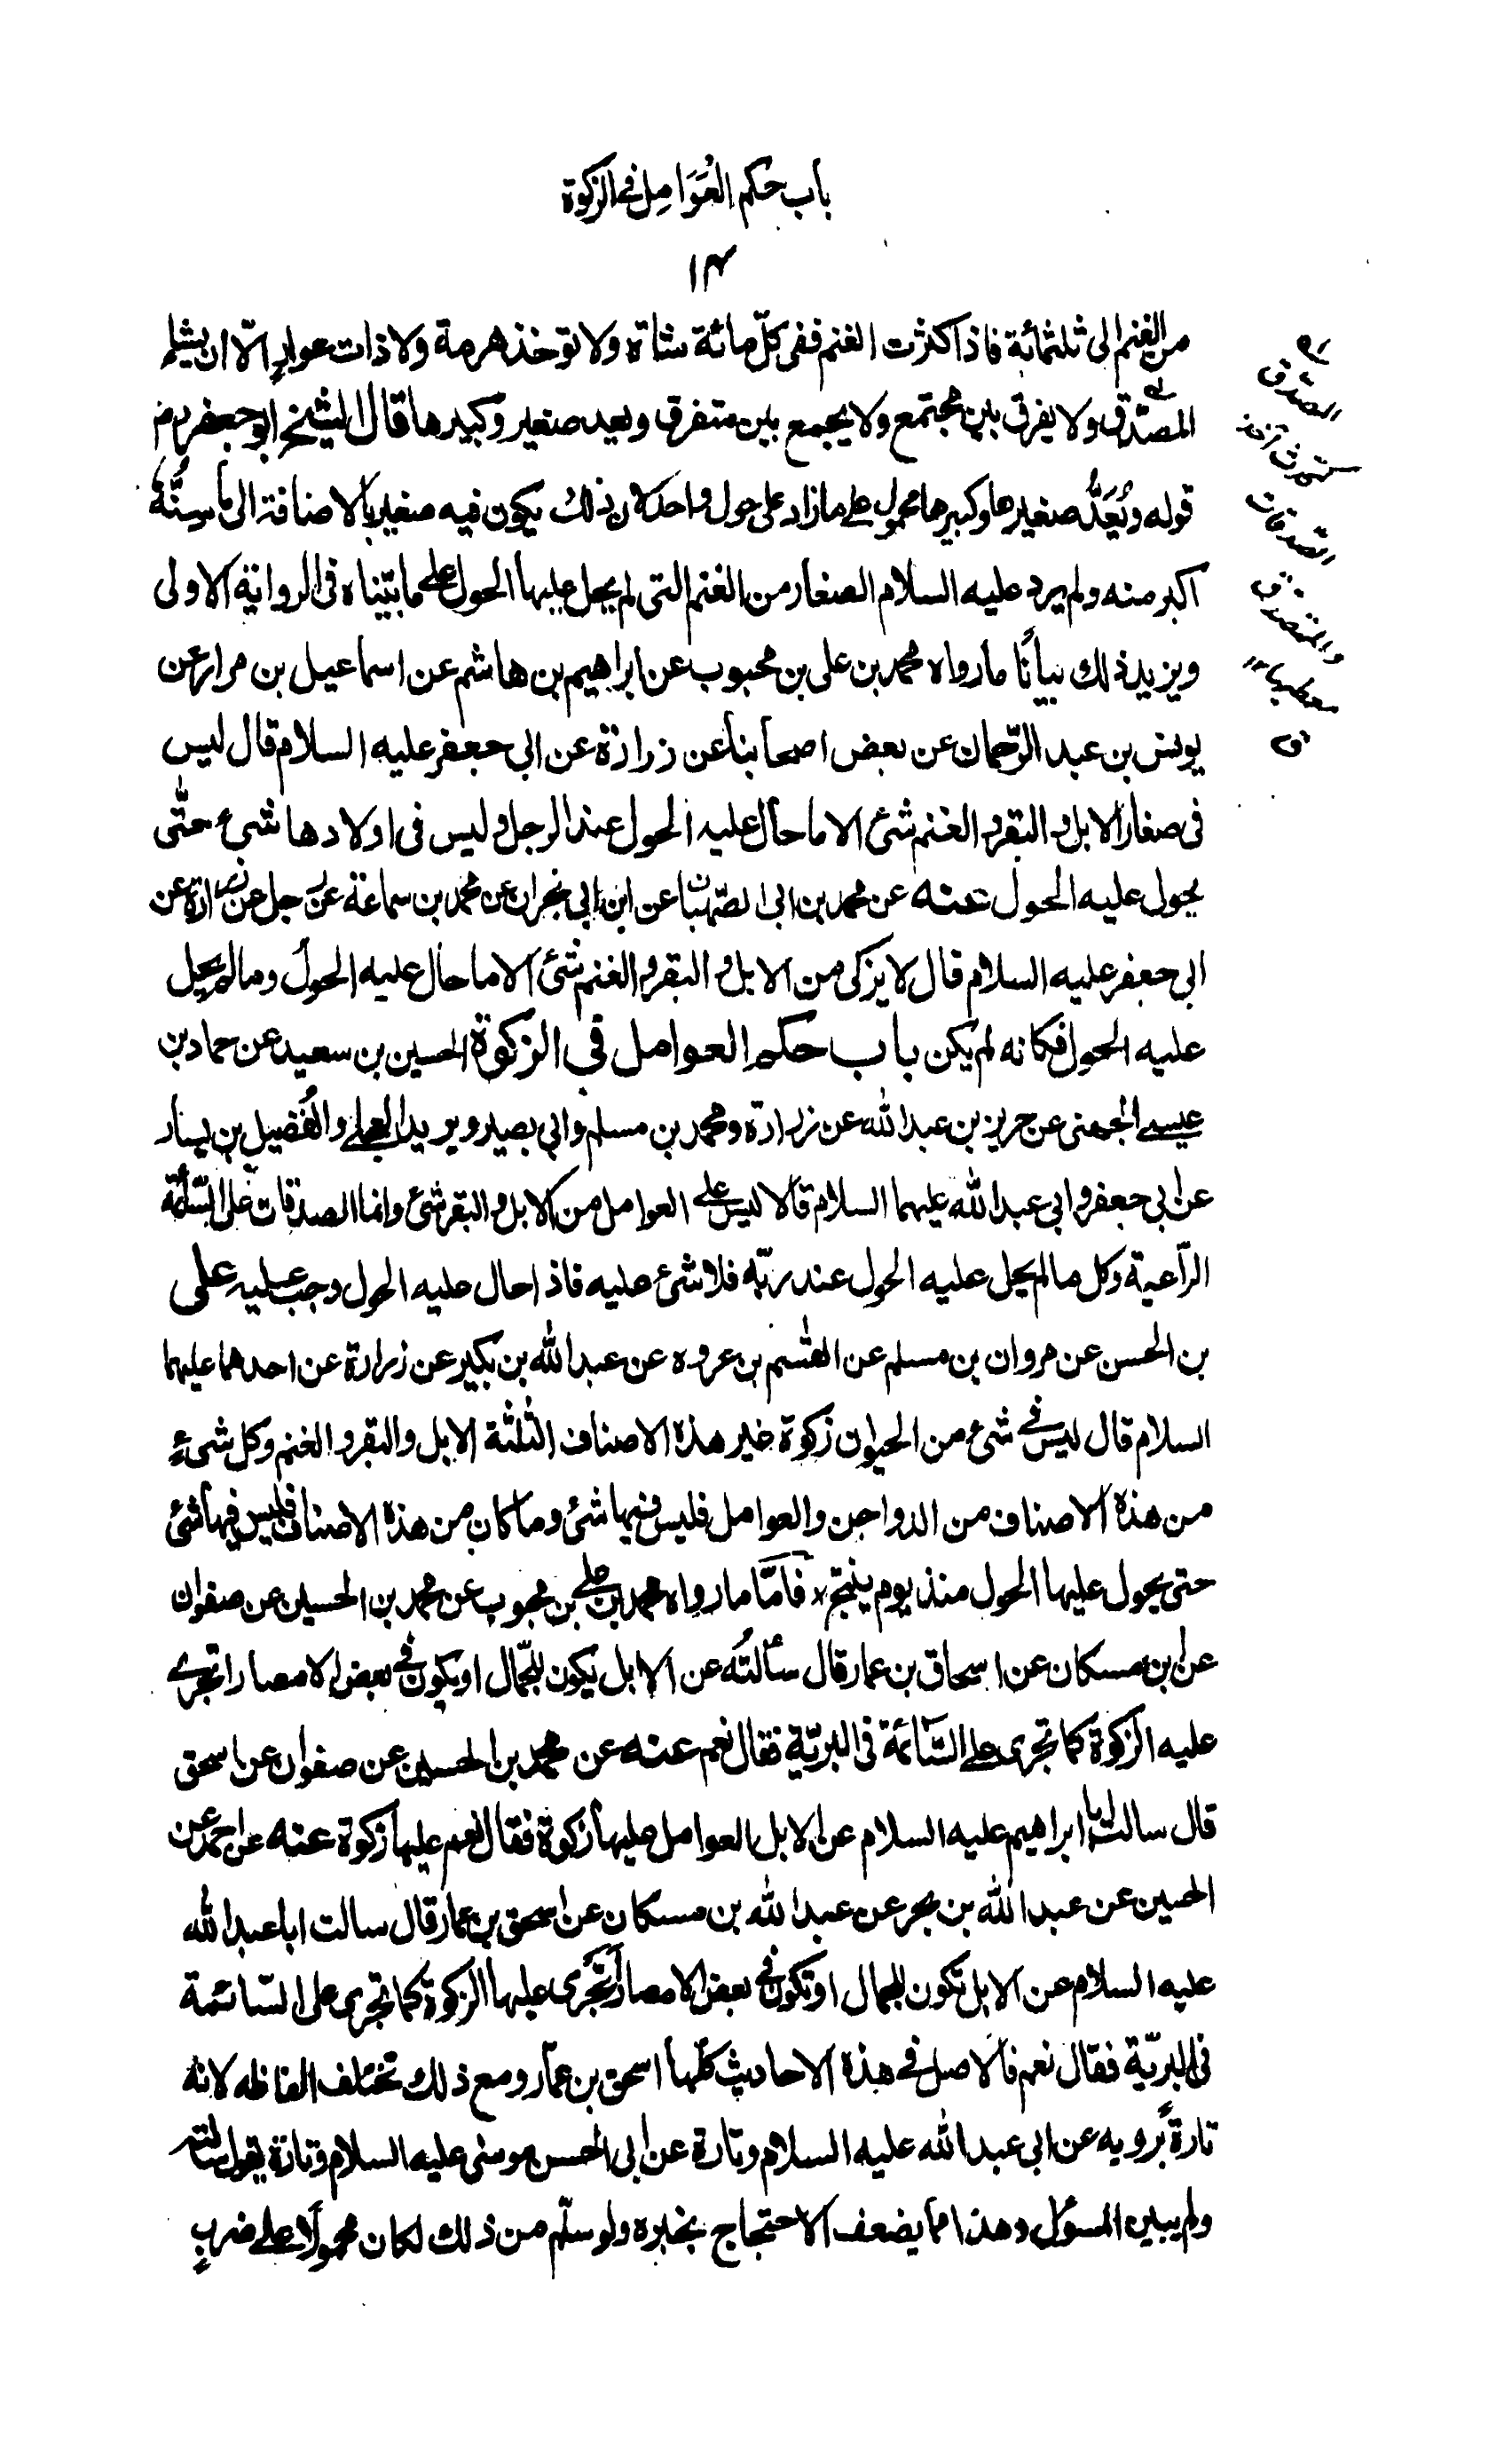 باب حكم العَوَامِل فى الزكوة
١٤
من الغنم الى ثلثمائة فاذا كثرت الغنم ففى كلّ مائة شاة ولا توخذ هرمة ولا ذات عوارٍ الّا ان يشاء
المصّدّق ولا يفرق بين مجتمع ولا يجمع بين متفرق ويعد صغير وكبيرها قال الشيخ ابو جعفر
قوله ويُعَدُّ صغيرها وكبيرها محمول على مازاد على حول واحد لان ذلك يكون فيه صغير بالاضافة الى ما سِنُّهُ
اكبر منه ولم يرد عليه السلام الصغار من الغنم التى لم يحل عليها الحول على ما بيّناه فى الرواية الاولى
ويزيد ذلك بيانًا ما رواه محمد بن على بن محبوب عن ابراهيم بن هاشم عن اسماعيل بن مرار عن
يونس بن عبد الرّحمان عن بعض اصحابنا عن زرارة عن ابى جعفر عليه السلام قال ليس
فى صغار الابل و البقر و الغنم شئ الا ما حال عليه الحول عند الرجل و ليس فى اولادها شىء حتّى
يحول عليه الحول عنه عن محمد بن ابى الصّهبان عن ابن ابى نجران عن محمد بن سماعة عن رجل عن زرارة عن
ابى جعفر عليه السلام قال لا يزكى من الابل و البقر و الغنم شئ الا ما حال عليه الحول وما لم يحل
عليه الحول فكانه لم يكن باب حكم العوامل فى الزكوة الحسين بن سعيد عن حماد بن
عيسى الجهنى عن حريز بن عبد الله عن زرارة ومحمد بن مسلم وابى بصير و بريد العجلى والفُضيل بن يسار
عن ابى جعفر و ابى عبد الله عليهما السلام قالا ليس على العوامل من الابل و البقر شئ وانما الصدقات على السّائمة
الرّاعية وكل ما لم يحل عليه الحول عند ربّه فلا شئ عليه فاذا حال عليه الحول وجب عليه على
بن الحسن عن مروان بن مسلم عن القسم بن عروه عن عبد الله بن بكير عن زرارة عن احدهما عليهما
السلام قال ليس فى شئ من الحيوان زكوة غير هذه الاصناف الثلثة الابل والبقر و الغنم وكل شىءٍ
من هذه الاصناف من الدواجن والعوامل فليس فيها شئ وما كان من هذه الاصناف فليس فيها شئ
حتى يحول عليها الحول منذ يوم ينتج فامّا ما رواه محمد بن على بن محبوب عن محمد بن الحسين عن صفوان
عن ابن مسكان عن اسحاق بن عمار قال سألتُه عن الابل يكون للجّمال او يكون فى بعض الامصار اتجرى
عليه الزكوة كما تجرى على السّائمة فى البريّة فقال نعم عنه عن محمد بن الحسين عن صفوان عن اسحق
قال سالت ابا ابراهيم عليه السلام عن الابل العوامل عليها زكوة فقال نعم عليها زكوة عنه عن احمد عن
الحسين عن عبد الله بن بحر عن عبد الله بن مسكان عن اسحق بن عمار قال سالت ابا عبد الله
عليه السلام عن الابل تكون للجمال او تكون فى بعض الامصار أتجرى عليها الزكوة كما تجرى على السّائمة
فى البريّة فقال نعم فالاصل فى هذه الاحاديث كلّها اسحق بن عمّار ومع ذلك تختلف الفاظه لانه
تارةً يرويه عن ابى عبد الله عليه السلام وتارة عن ابى الحسن موسى عليه السلام و تارة يقول سالته
ولم يبين المسؤل وهذا مما يضعف الاحتجاج بخبره ولو سلّم من ذلك لكان محمولًا على ضربٍ
المصدّق
الصّدقات
والمتصدق
معطيها
ق